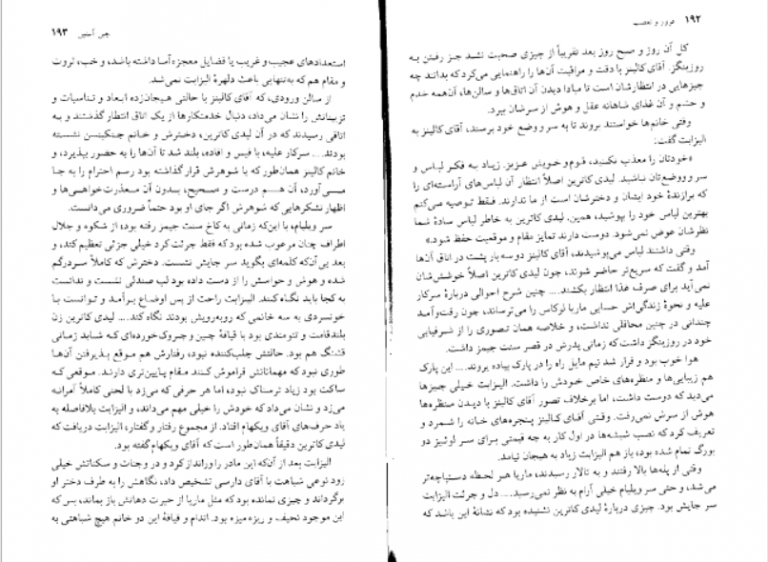 ۱۹۲ غرور و تعصب
کل آن روز و صبح روز بعد تقریباً از چیزی صحبت نشد جز رفتن به
روزینگز. آقای کالینز با دقت و مراقبت آن‌ها را راهنمایی می‌کرد که بدانند چه
چیزهایی در انتظارشان است تا مبادا دیدن آن اتاق‌ها و سالن‌ها، آن‌همه خدم
و حشم و آن غذای شاهانه عقل و هوش از سرشان ببرد.
وقتی خانم‌ها خواستند بروند تا به سر و وضع خود برسند، آقای کالینز به
الیزابت گفت:
«خودتان را معذب نکنید، قوم و خویش عزیز. زیاد به فکر لباس و
سر و وضع‌تان نباشید. لیدی کاترین اصلاً انتظار آن لباس‌های آراسته‌ای را
که برازندهٔ خود ایشان و دخترشان است از ما ندارند. فقط توصیه می‌کنم
بهترین لباس خود را بپوشید، همین. لیدی کاترین به خاطر لباس سادهٔ شما
نظرشان عوض نمی‌شود. دوست دارند تمایز مقام و موقعیت حفظ شود.»
وقتی داشتند لباس می‌پوشیدند، آقای کالینز دو سه بار پشت در اتاق آن‌ها
آمد و گفت که سریع‌تر حاضر شوند، چون لیدی کاترین اصلاً خوشش‌شان
نمی‌آید برای صرف غذا انتظار بکشند.... چنین شرح احوالی دربارهٔ سرکار
علیه و نحوهٔ زندگی‌اش حسابی ماریا لوکاس را می‌ترساند، چون رفت‌وآمد
چندانی در چنین محافلی نداشت، و خلاصه همان تصوری را از شرفیابی
خود در روزینگز داشت که زمانی پدرش در قصر سنت جیمز داشت.
هوا خوب بود و قرار شد نیم مایل راه را در پارک پیاده بروند.... این پارک
هم زیبایی‌ها و منظره‌های خاص خودش را داشت. الیزابت خیلی چیزها
می‌دید که دوست داشت، اما برخلاف تصور آقای کالینز با دیدن منظره‌ها
هوش از سرش نمی‌رفت. وقتی آقای کالینز پنجره‌های خانه را شمرد و
تعریف کرد که نصب شیشه‌ها در اول کار به چه قیمتی برای سر لوئیز دو
بورگ تمام شده بود، باز هم الیزابت زیاد به هیجان نیامد.
وقتی از پله‌ها بالا رفتند و به تالار رسیدند، ماریا هر لحظه دستپاچه‌تر
می‌شد، و حتی سر ویلیام خیلی آرام به نظر نمی‌رسید.... دل و جرئت الیزابت
سر جایش بود. چیزی دربارهٔ لیدی کاترین نشنیده بود که نشانهٔ این باشد که
جین آستین ۱۹۳
استعدادهای عجیب و غریب یا فضایل معجزه‌آسا داشته باشد، و خب، ثروت
و مقام هم که به‌تنهایی باعث دلهرهٔ الیزابت نمی‌شد.
از سالن ورودی، که آقای کالینز با حالتی هیجان‌زده ابعاد و تناسبات و
تزییناتش را نشان می‌داد، دنبال خدمتکارها از یک اتاق انتظار گذشتند و به
اتاقی رسیدند که در آن لیدی کاترین، دخترش و خانم جنکینسن نشسته
بودند.... سرکار علیه، با فیس و افاده، بلند شد تا آن‌ها را به حضور بپذیرد، و
خانم کالینز همان‌طور که با شوهرش قرار گذاشته بود رسم احترام را به جا
می‌آورد، آن هم درست و صحیح، بدون آن معذرت‌خواهی‌ها و
اظهار تشکرهایی که شوهرش اگر جای او بود حتماً ضروری می‌دانست.
سر ویلیام، با این‌که زمانی به کاخ سنت جیمز رفته بود، از شکوه و جلال
اطراف چنان مرعوب شده بود که فقط جرئت کرد خیلی جزئی تعظیم کند، و
بعد بی‌آن‌که کلمه‌ای بگوید سر جایش نشست. دخترش که کاملاً سردرگم
شده و هوش و حواسش را از دست داده بود لب صندلی نشست و ندانست
به کجا باید نگاه کند. الیزابت راحت از پس اوضاع برآمد و توانست با
خونسردی به سه خانمی که روبه‌رویش بودند نگاه کند.... لیدی کاترین زن
بلندقامت و تنومندی بود با قیافهٔ چین و چروک‌خورده‌ای که شاید زمانی
قشنگ هم بود. حالتش جلب‌کننده نبود، رفتارش هم موقع پذیرفتن آن‌ها
طوری نبود که مهمانانش فراموش کنند مقام پایین‌تری دارند. موقعی که
ساکت بود زیاد ترسناک نبود، اما هر حرفی که می‌زد با لحنی کاملاً آمرانه
می‌زد و نشان می‌داد که خودش را خیلی مهم می‌داند، و الیزابت بلافاصله به
یاد حرف‌های آقای ویکهام افتاد. از مجموع رفتار و گفتار، الیزابت دریافت که
لیدی کاترین دقیقاً همان‌طور است که آقای ویکهام گفته بود.
الیزابت بعد از آن‌که این مادر را ورانداز کرد و در وجنات و سکناتش خیلی
زود نوعی شباهت با آقای دارسی تشخیص داد، نگاهش را به طرف دختر او
برگرداند و چیزی نمانده بود که مثل ماریا از حیرت دهانش باز بماند، بس که
این موجود نحیف و ریزه‌میزه بود. اندام و قیافهٔ این دو خانم هیچ شباهتی به